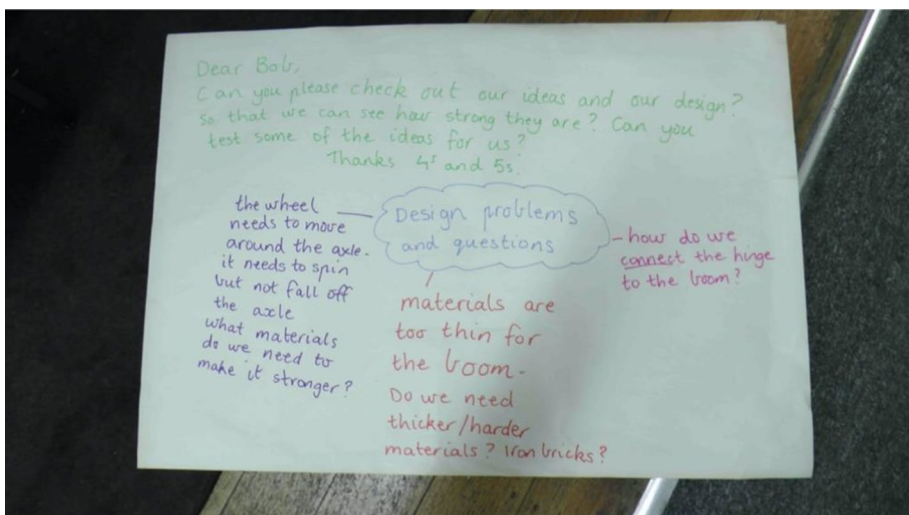 Dear Bob,
Can you please check out our ideas and our design?
So that we can see how strong they are? Can you
test some of the ideas for us?
Thanks 4s and 5s.
Design problems
and questions
the wheel
needs to move
around the axle.
it needs to spin
but not fall off
the axle
what materials
do we need to
make it stronger?
materials are
too thin for
the boom.
Do we need
thicker/harder
materials? Iron bricks?
- how do we
connect the hinge
to the boom?